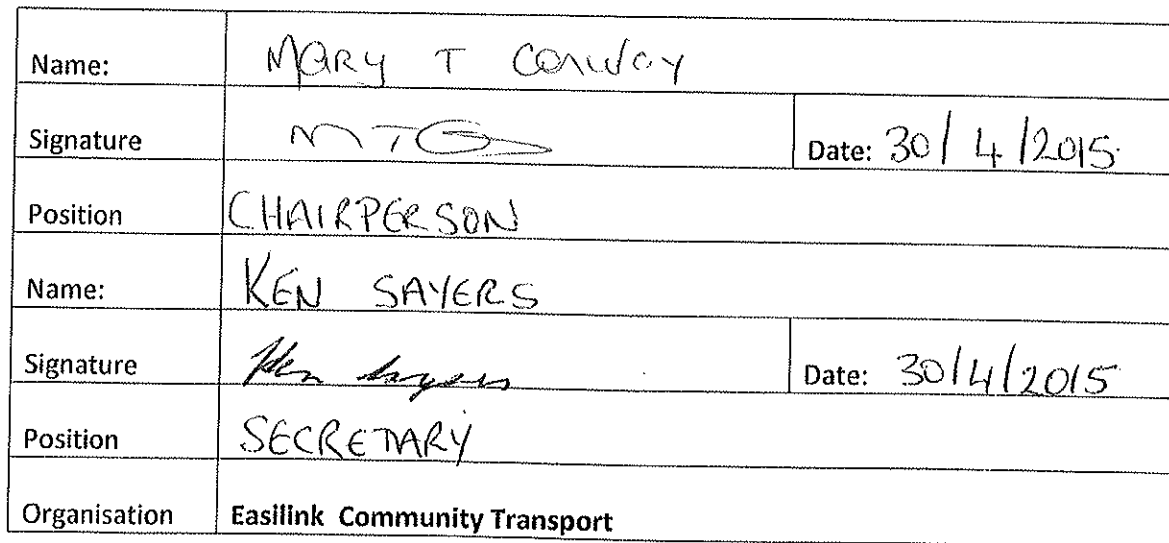 Name: MARY T CONWAY
Signature MTC Date: 30/4/2015
Position CHAIRPERSON
Name: KEN SAYERS
Signature Ken Sayers Date: 30/4/2015
Position SECRETARY
Organisation Easilink Community Transport